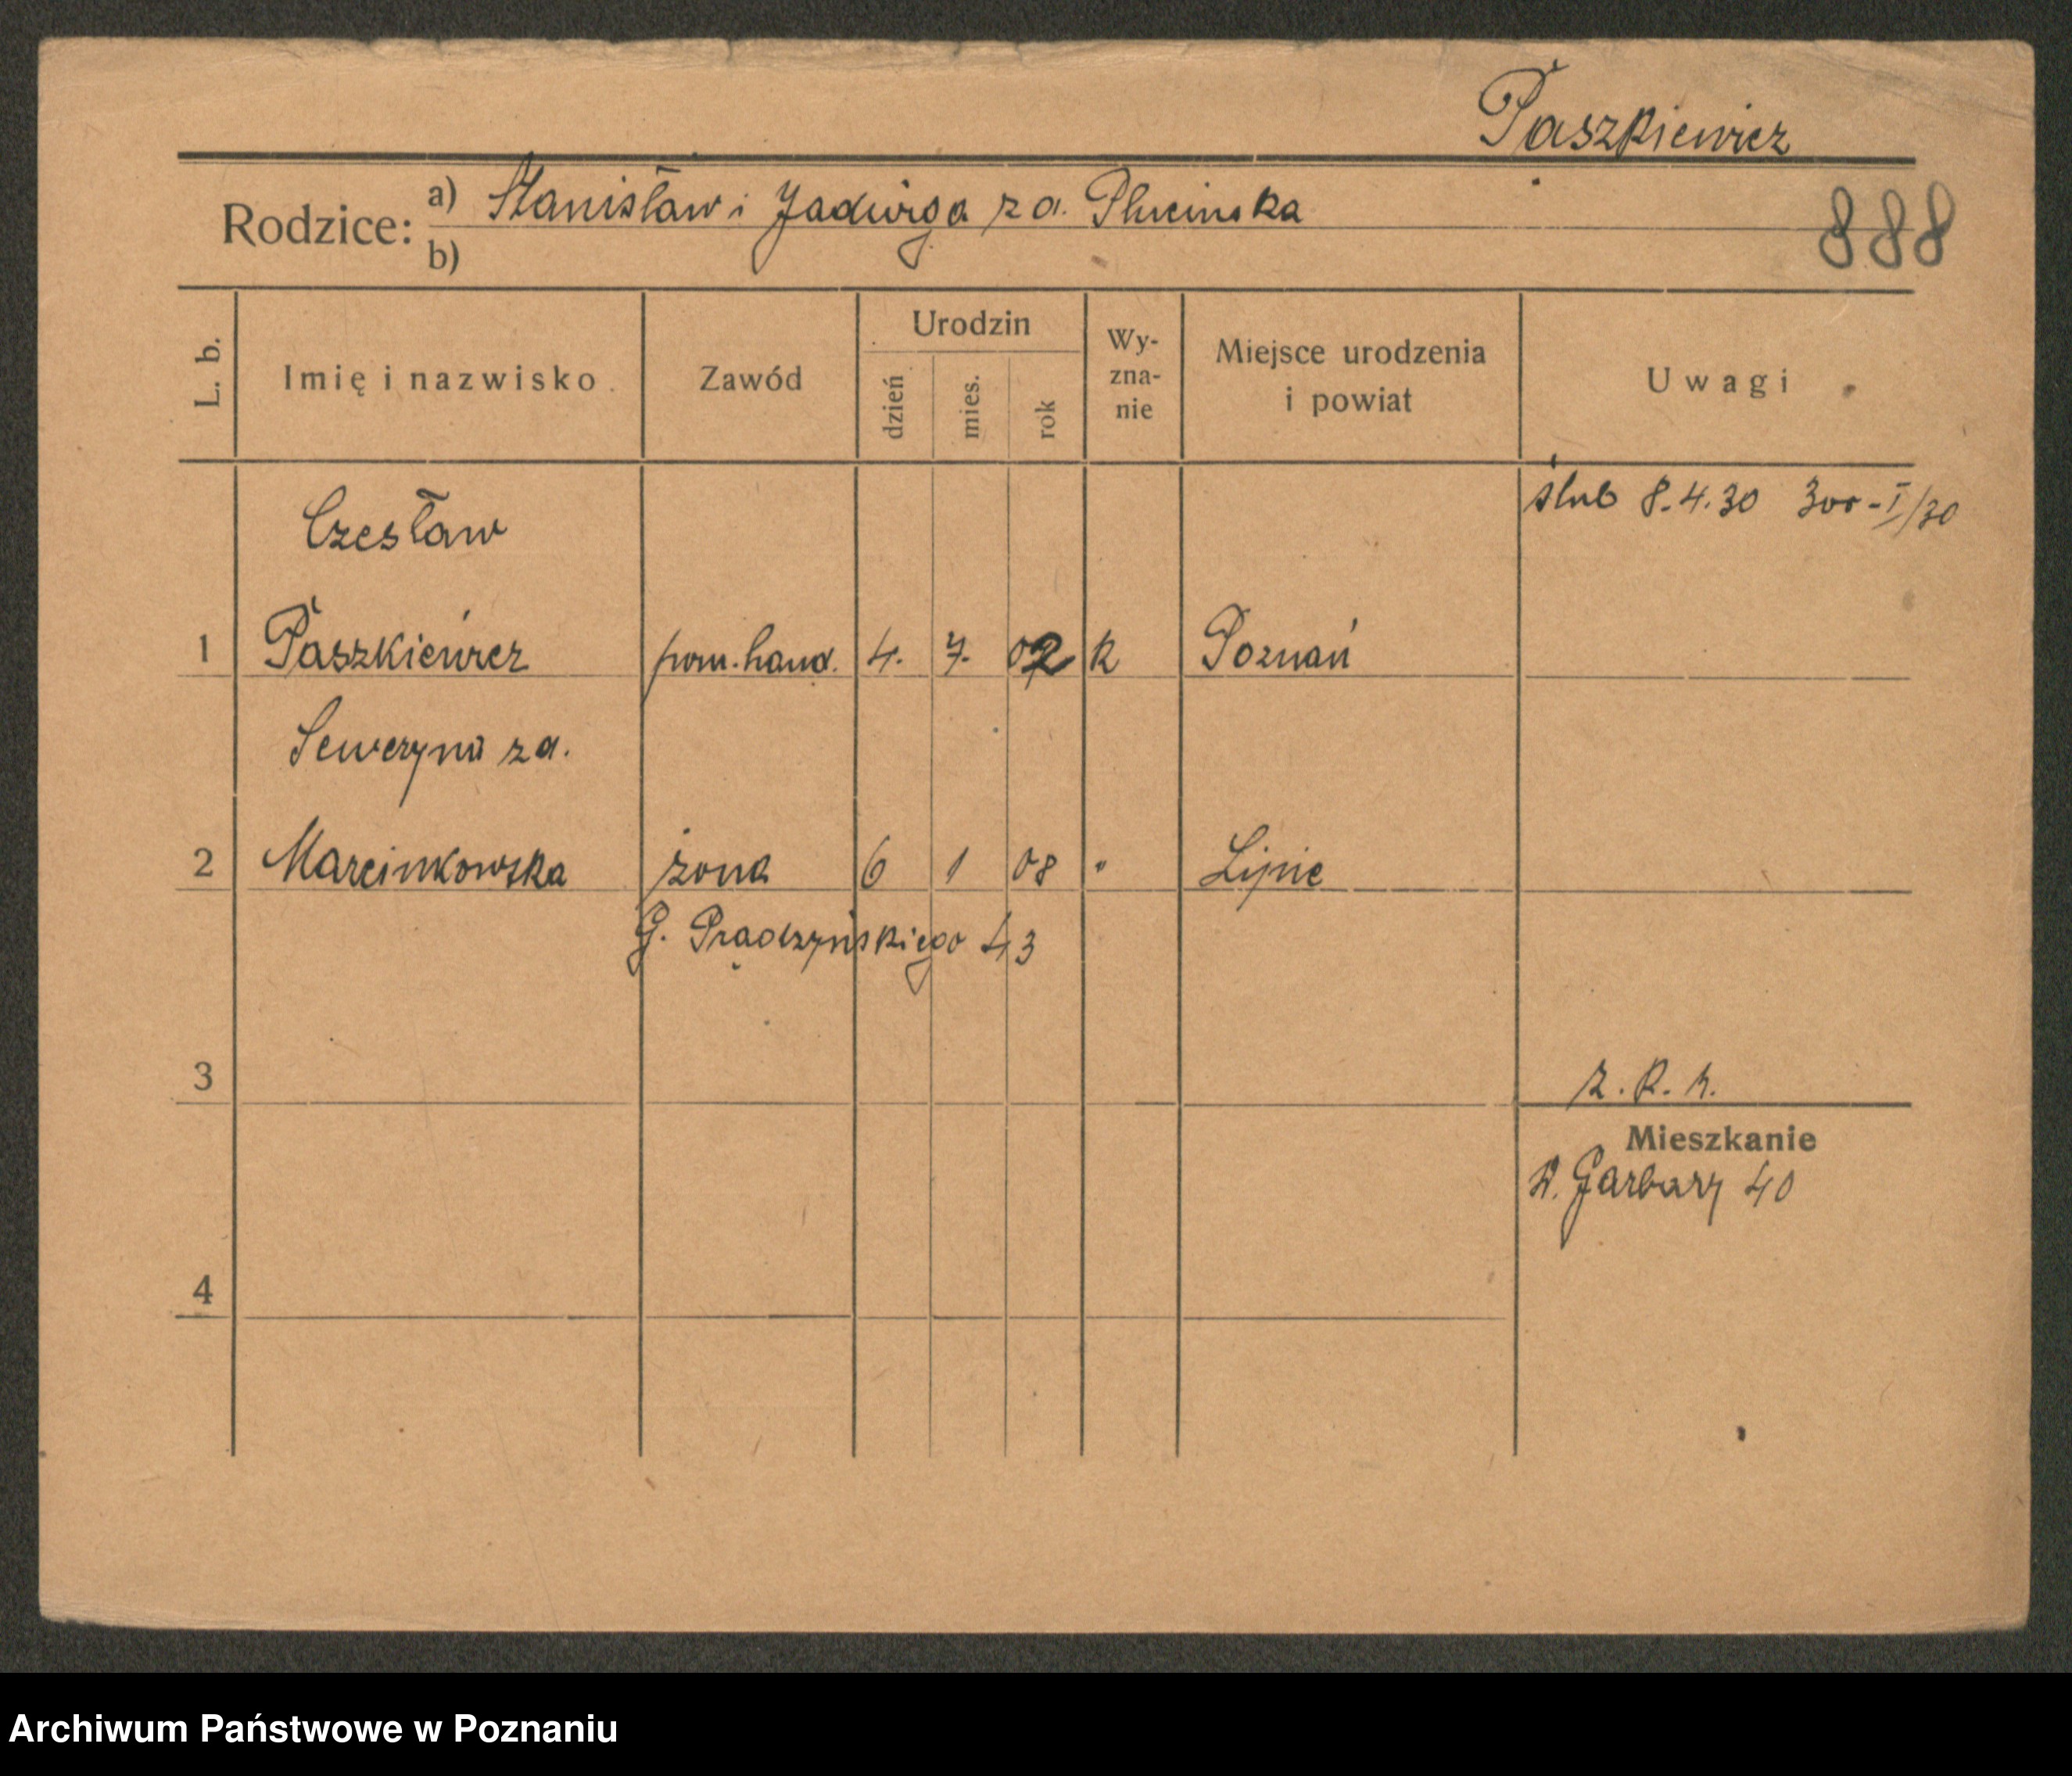 Paszkiewicz
Rodzice: a) Stanisław i Jadwiga z d. Plucinska
b)
888
L. b.
Imię i nazwisko
Zawód
Urodzin
dzień
mies.
rok
Wy-
zna-
nie
Miejsce urodzenia
i powiat
Uwagi
ślub 8.4.30 300-I/30
Czesław
1 Paszkiewicz pom. hand. 4. 7. 02 k Poznań
Seweryna z d.
2 Marcinkowska żona 6 1 08 " Lipie
G. Prądzyńskiego 43
3
Mieszkanie
W. Garbary 40
4
Archiwum Państwowe w Poznaniu